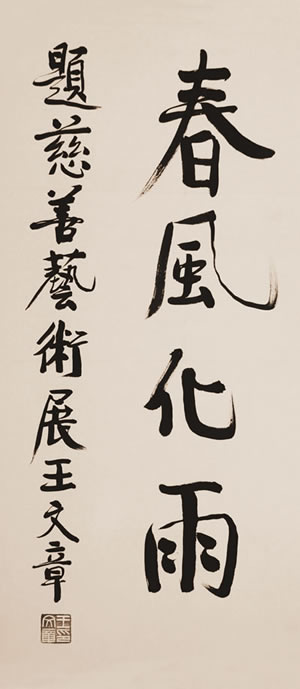 春風化雨
題慈善藝術展王文章